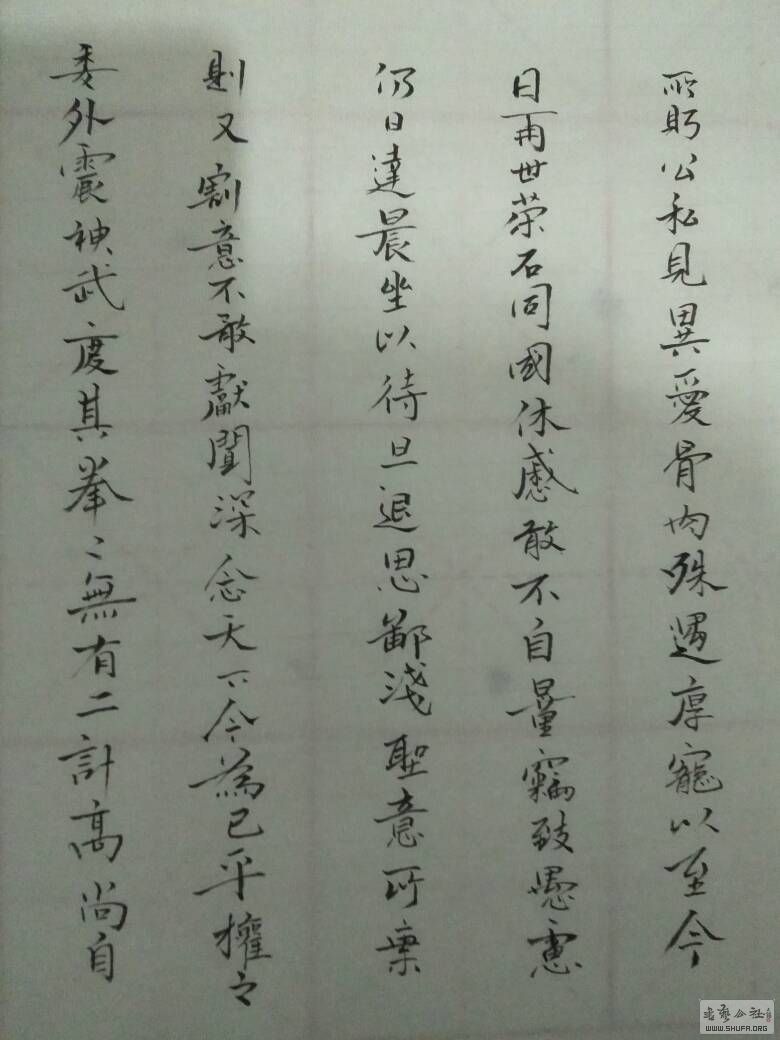 所盼公私見異愛骨肉殊遇厚寵以至今
日再世荣名同國休慼敢不自量竊致愚慮
仍日達晨坐以待旦退思鄙淺聖意所棄
則又割意不敢獻聞深念天下今為已平權之
委外震神武度其拳〻無有二計高尚自
WWW.SHUFA.ORG